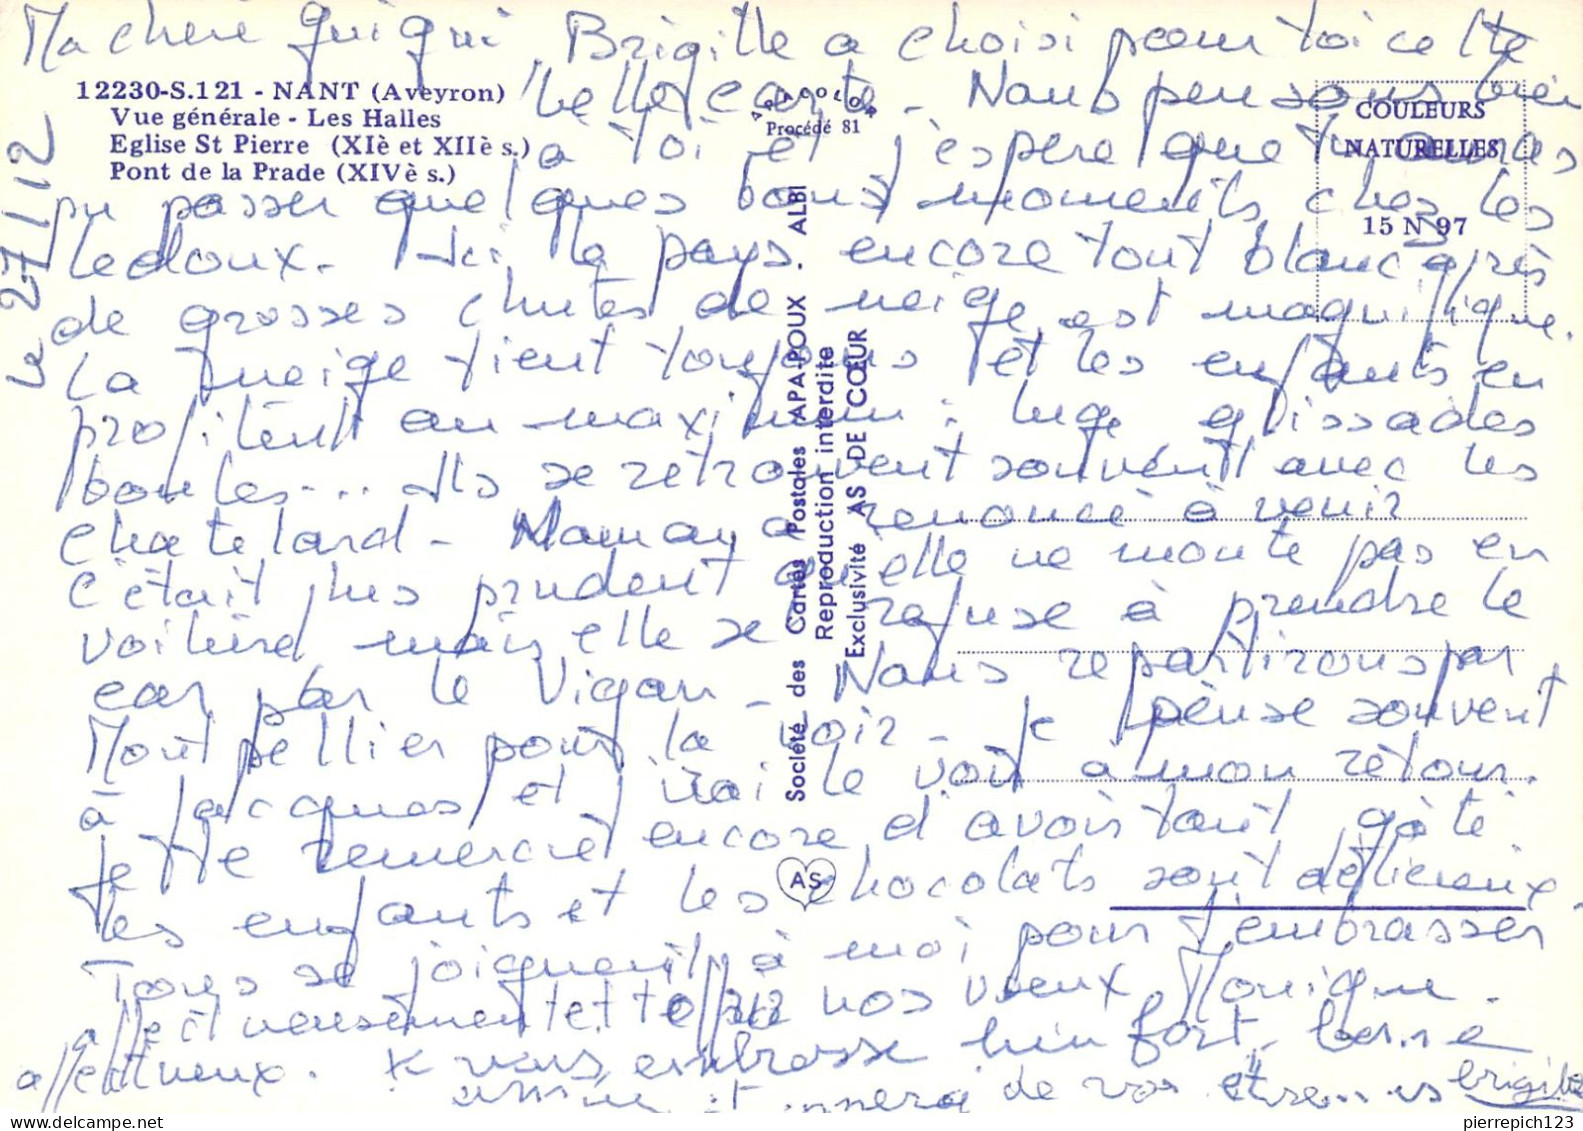 Ma chère guigui Brigitte a choisi pour toi cette
12230-S.121 - NANT (Aveyron)
Vue générale - Les Halles
Eglise St Pierre (XIè et XIIè s.)
Pont de la Prade (XIVè s.)
APA COLOR
Procédé 81
COULEURS
NATURELLES
15 N 97
le 27/12
belle carte - Nous pensons bien
à toi et j'espère que tu auras
pu passer quelques bons moments chez les
Ledoux. Ici le pays encore tout blanc après
de grosses chutes de neige est magnifique.
La neige tient toujours et les enfants en
profitent au maximum : luge glissades
boules... Ils se retrouvent souvent avec les
Chatelard - Maman a renoncé à venir
c'était plus prudent qu'elle ne monte pas en
voiture mais elle se refuse à prendre le
car par le Vigan - Nous repartirons par
Montpellier pour la voir - Je pense souvent
à Jacques et j'irai le voir à mon retour.
Je te remercie encore d'avoir tant gâté
les enfants et les chocolats sont délicieux
Tous se joignent à moi pour t'embrasser
affectueusement et t'offrir nos voeux Monique.
affectueux. Je vous embrasse bien fort bonne
année et merci de vos étrennes brigitte
Société des Cartes Postales APA-POUX ALBI
Reproduction interdite
Exclusivité AS DE CŒUR
AS
pierrepich123